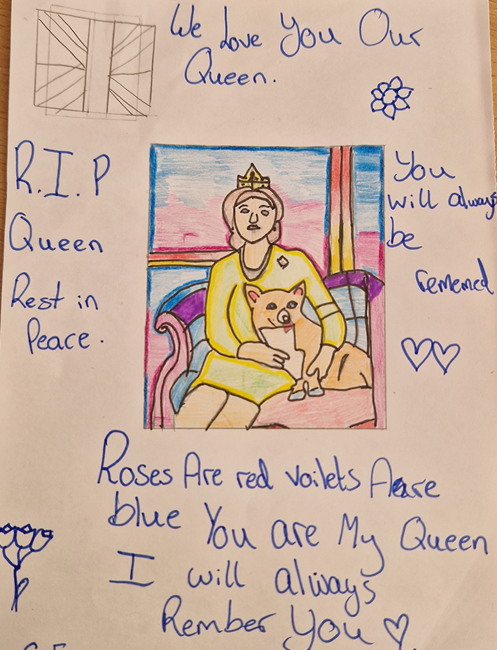 We Love You Our
Queen.
R.I.P
Queen
Rest in
Peace.
You
will always
be
rememed
Roses Are red voilets Aare
blue You are My Queen
I will always
Rember You